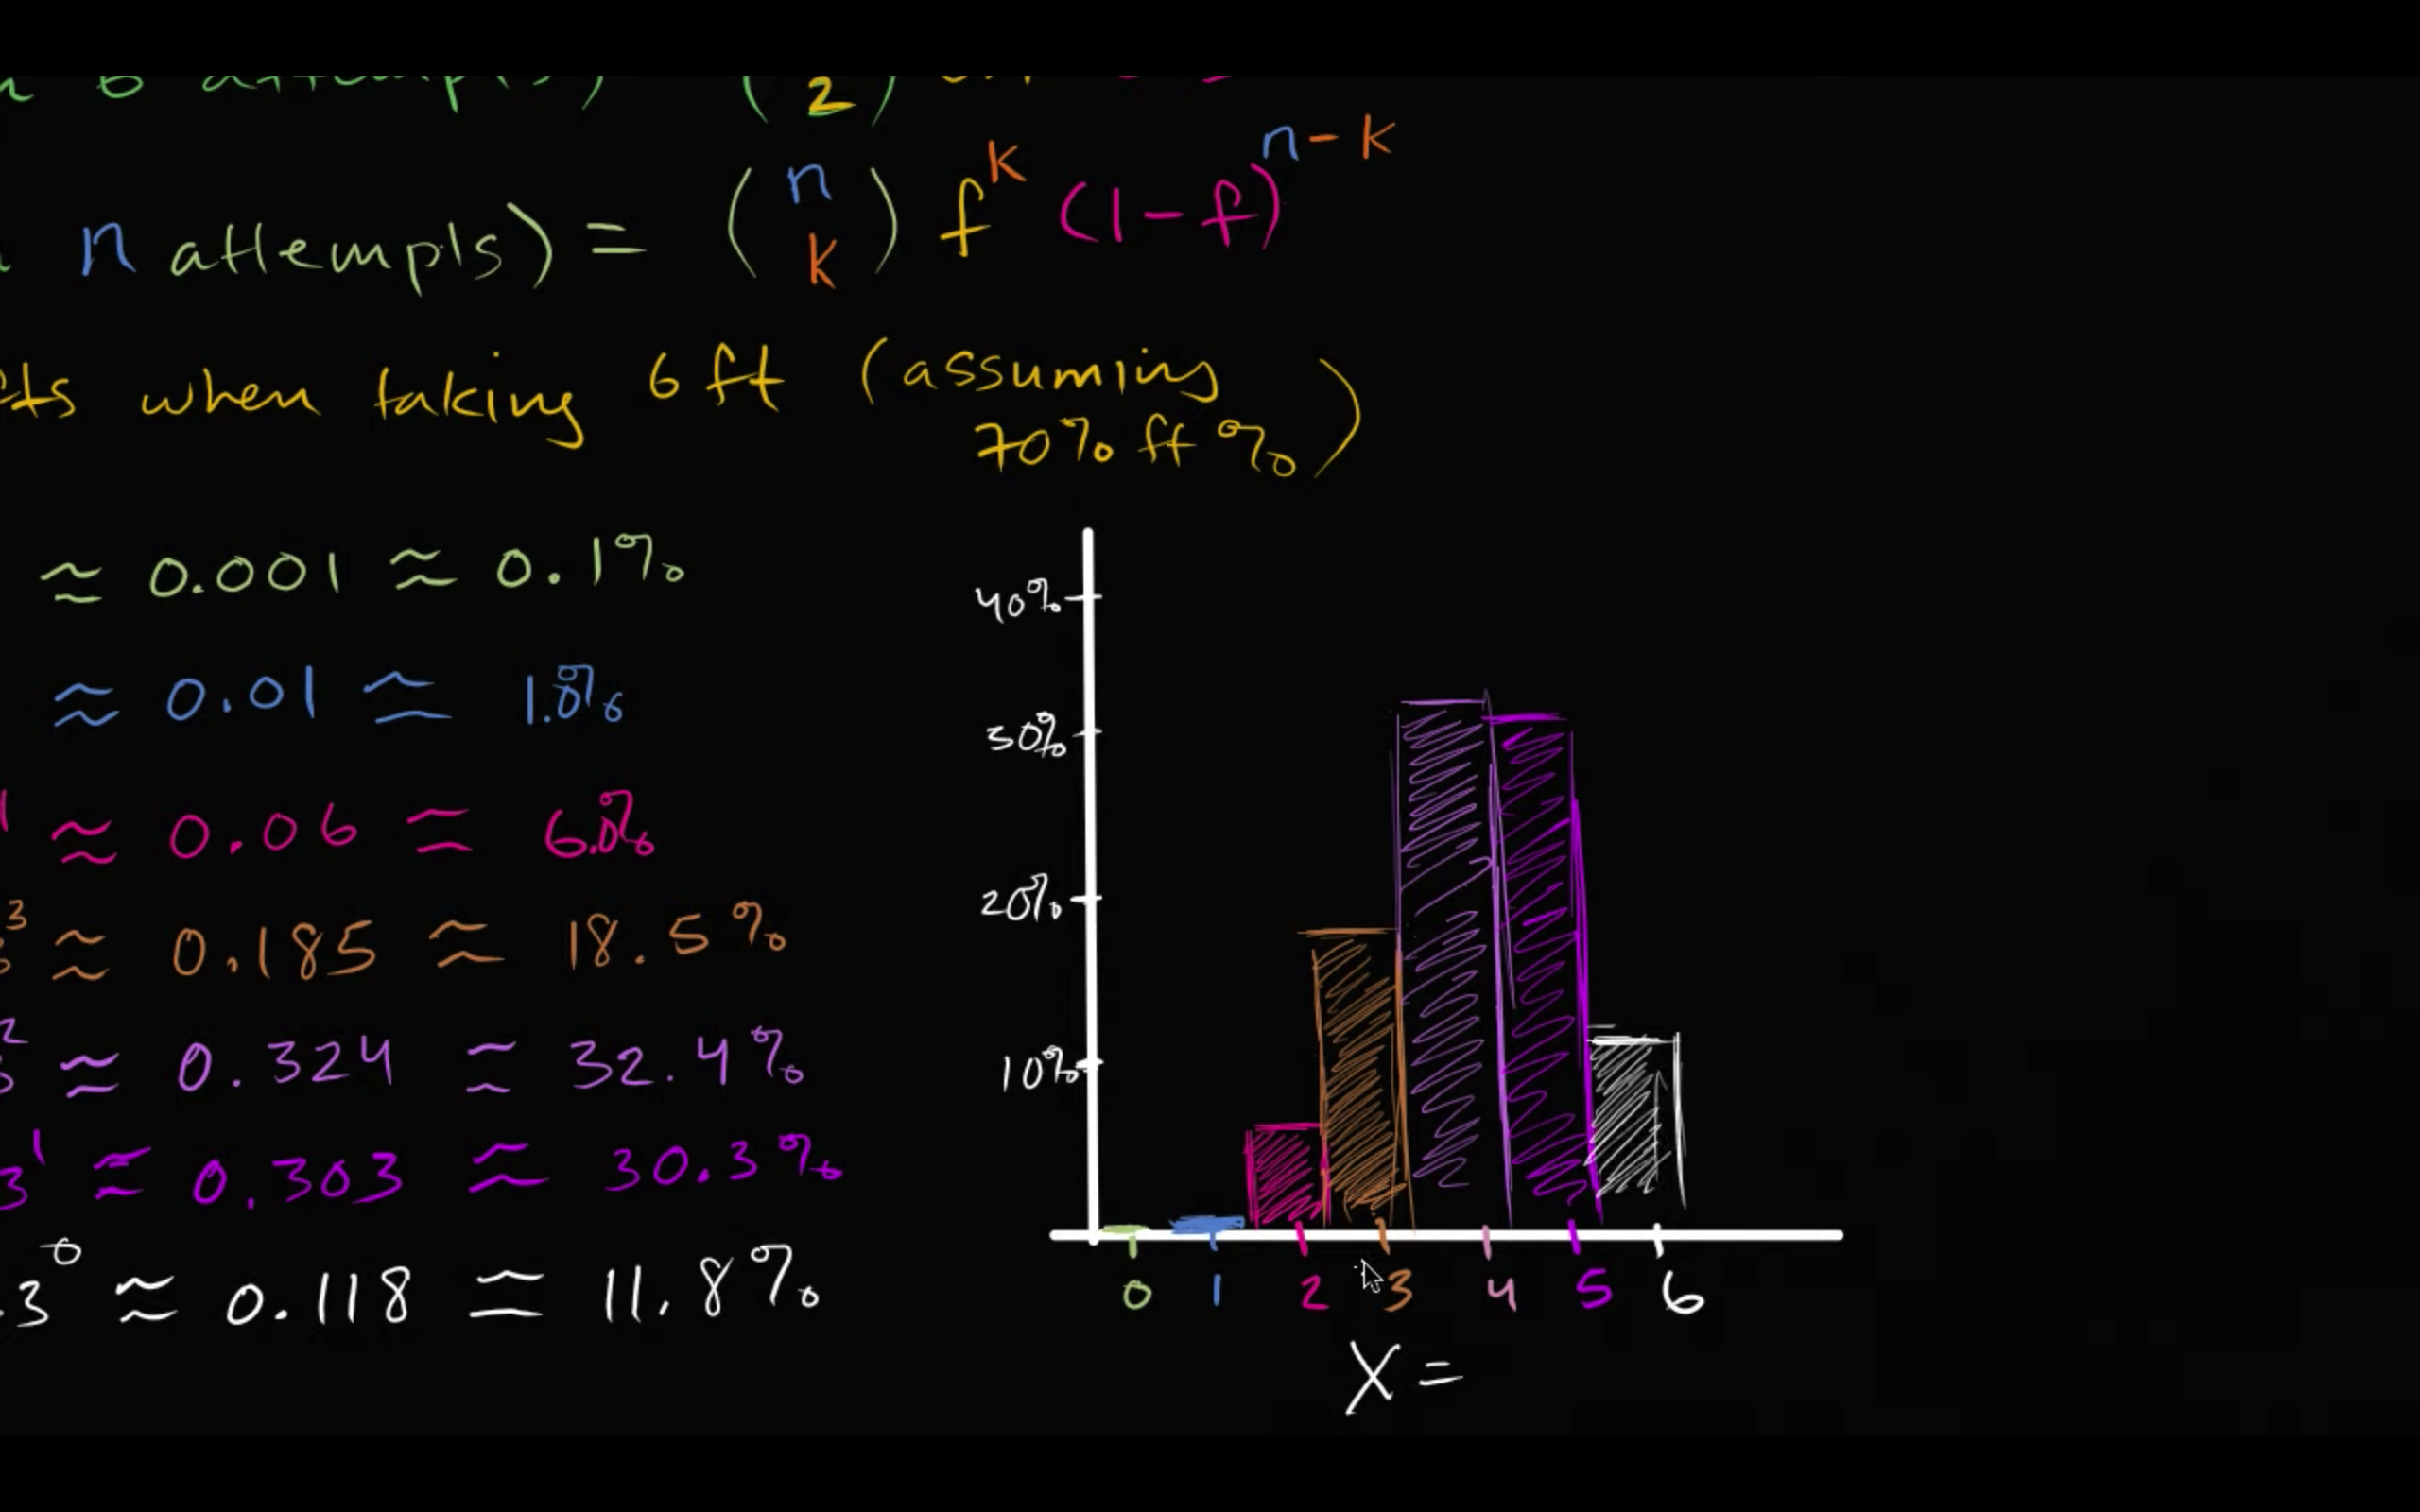 6 attempts) (2)
n attempts) = (n k) f^k (1-f)^n-k
when taking 6 ft (assuming
70% ft %)
≈ 0.001 ≈ 0.1%
≈ 0.01 ≈ 1.0%
≈ 0.06 ≈ 6.0%
3 ≈ 0.185 ≈ 18.5%
2 ≈ 0.324 ≈ 32.4%
3^1 ≈ 0.303 ≈ 30.3%
.3^0 ≈ 0.118 ≈ 11.8%
40%
30%
20%
10%
0 1 2 3 4 5 6
X =